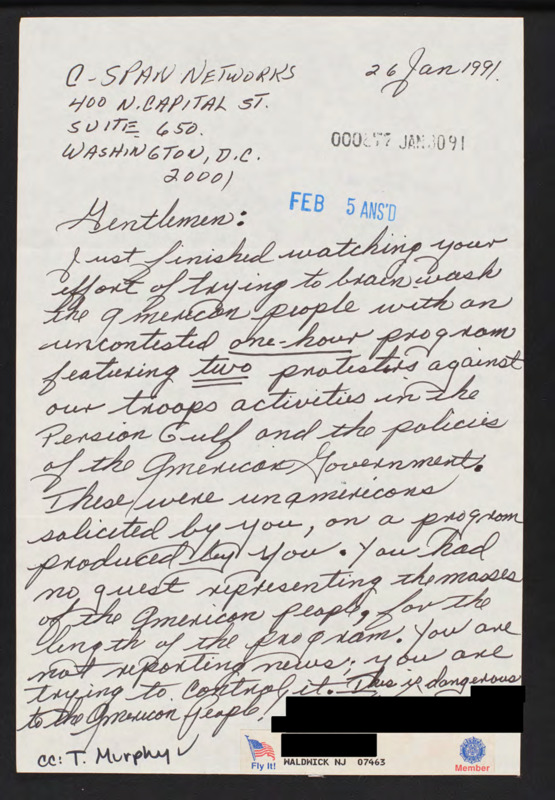 C-SPAN NETWORKS
26 Jan 1991.
400 N. CAPITAL ST.
SUITE 650.
WASHINGTON, D.C.
20001
JAN 30 91
FEB 5 ANS'D
Gentlemen:
Just finished watching your
effort of trying to brain wash
the American people with an
uncontested one-hour program
featuring two protesters against
our troops activities in the
Persion Gulf and the policies
of the American Government.
These were unamericans
solicited by you, on a program
produced by you. You had
no guest representing the masses
of the American people, for the
length of the program. You are
not reporting news; you are
trying to control it. This is dangerous
to the American people!
cc: T. Murphy
Fly It!
WALDWICK NJ 07463
Member